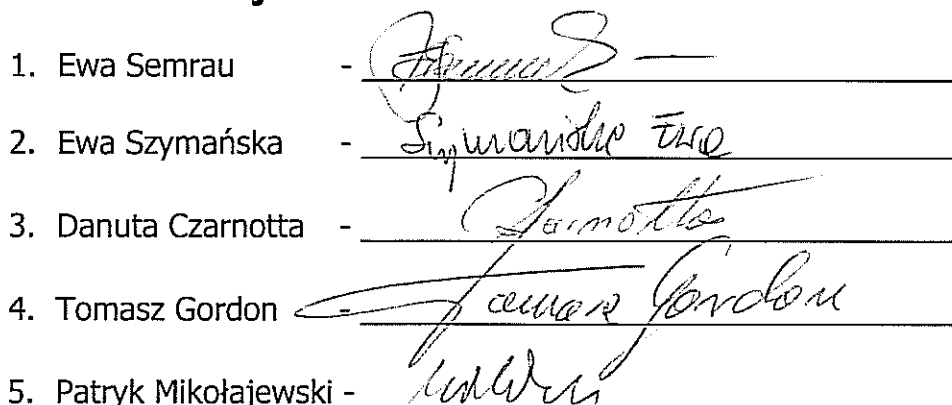 1. Ewa Semrau -
2. Ewa Szymańska - Szymańska Ewa
3. Danuta Czarnotta - Czarnotta
4. Tomasz Gordon - Tomasz Gordon
5. Patryk Mikołajewski -